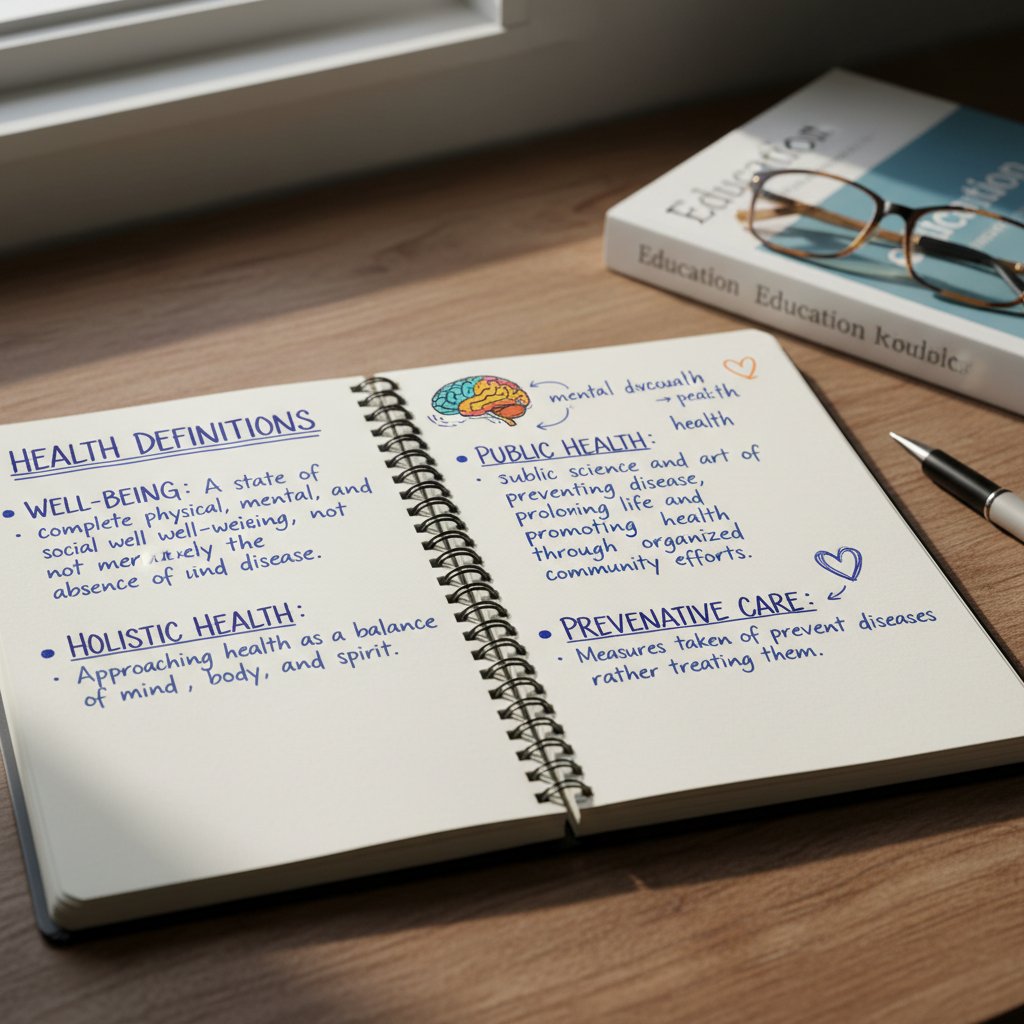 HEALTH DEFINITIONS
• WELL-BEING: A state of
· complete physical, mental, and
social well well-weieing, not
not mer kely the
absence of und disease.
• HOLISTIC HEALTH:
· Approaching health as a balance
of mind , body, and spirit.
mental
→ peakth
health
• PUBLIC HEALTH:
· sublic science and art of
preventing disease,
proloning life and
promoting health
through organized
community efforts.
• PREVENATIVE CARE:
· Measures taken of prevent diseases
rather treating them.
Education
Education Education